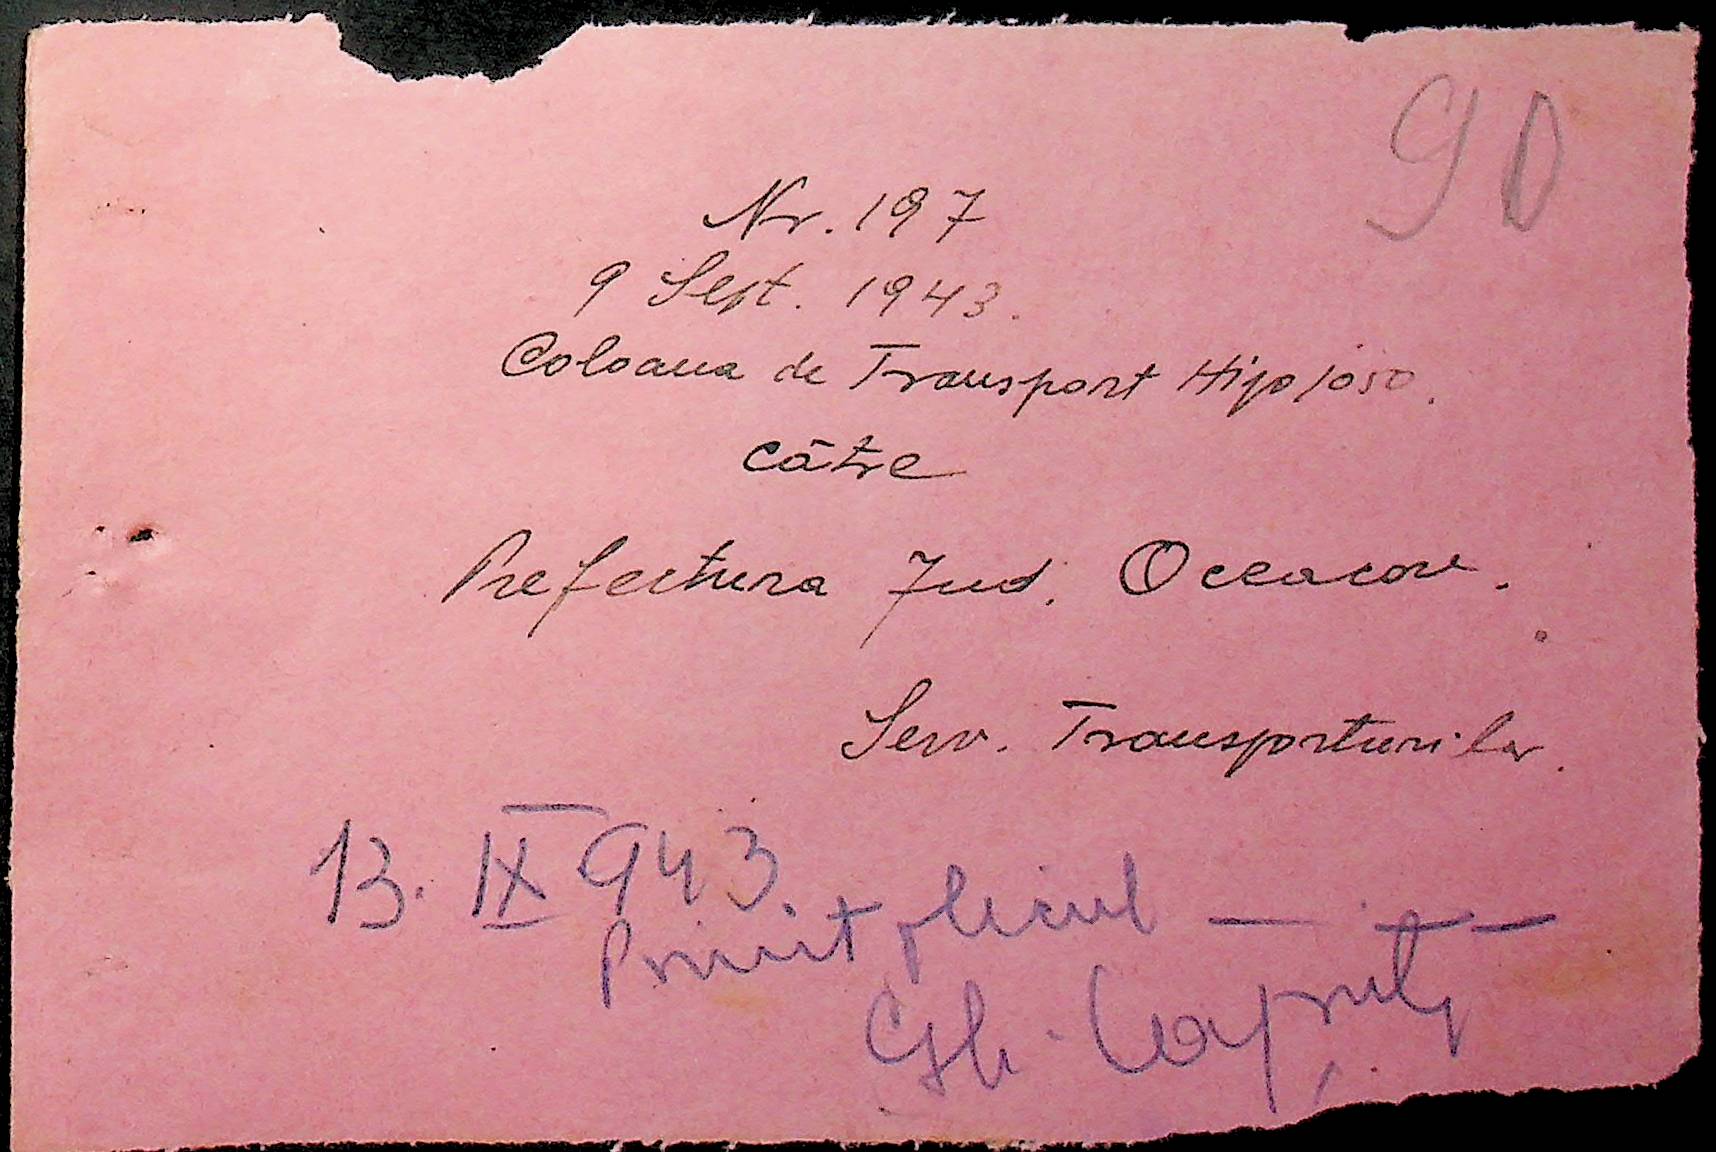 90
Nr. 197
9 Sept. 1943.
Coloana de Transport Hipo 1050.
către
Prefectura Jud. Oceacov.
Serv. Transporturilor.
13. IX 943.
Primit plicul —
Gh.